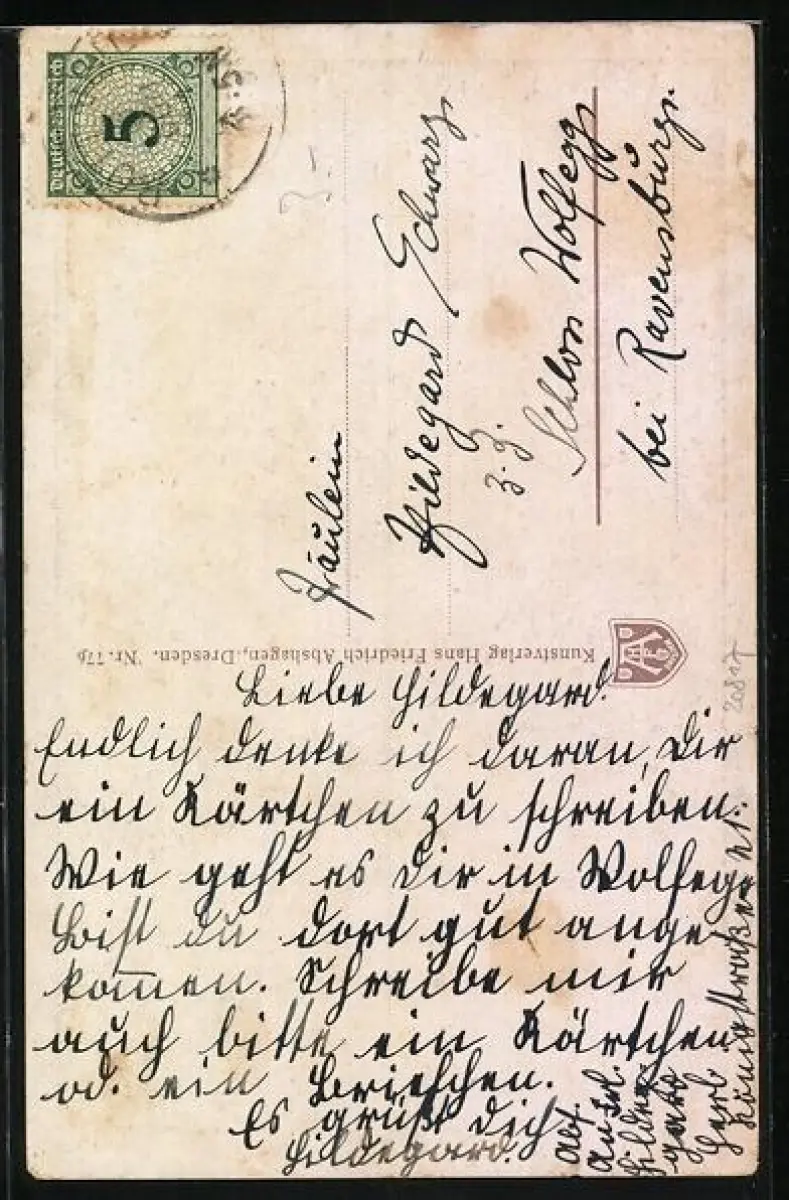 5
Fräulein
Hildegard Schwarz
z. Z.
Schloss Wolfegg
bei Ravensburg.
Kunstverlag Hans Friedrich Abshagen, Dresden. Nr. 77
20817
Liebe Hildegard.
Endlich denke ich daran, Dir
ein Kärtchen zu schreiben.
Wie geht es Dir in Wolfegg
Bist du dort gut ange
kommen. Schreibe mir
auch bitte ein Kärtchen
od. ein Briefchen.
Es grüßt dich
Hildegard.
Abs.
Hilde
gard
Königstraße